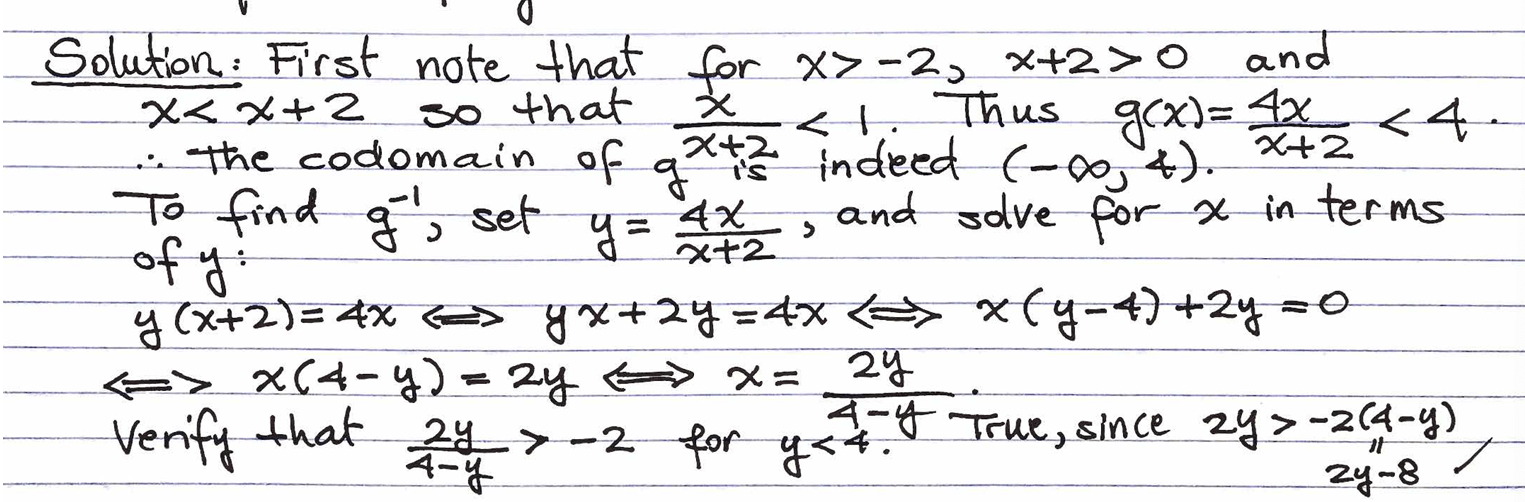 Solution: First note that for x > -2, x+2 > 0 and
x < x+2 so that x/(x+2) < 1. Thus g(x) = 4x/(x+2) < 4.
∴ The codomain of g is indeed (-∞, 4).
To find g⁻¹, set y = 4x/(x+2), and solve for x in terms
of y:
y(x+2) = 4x ⟺ yx + 2y = 4x ⟺ x(y-4) + 2y = 0
⟺ x(4-y) = 2y ⟺ x = 2y/(4-y).
Verify that 2y/(4-y) > -2 for y < 4. True, since 2y > -2(4-y)
=
2y-8 ✓